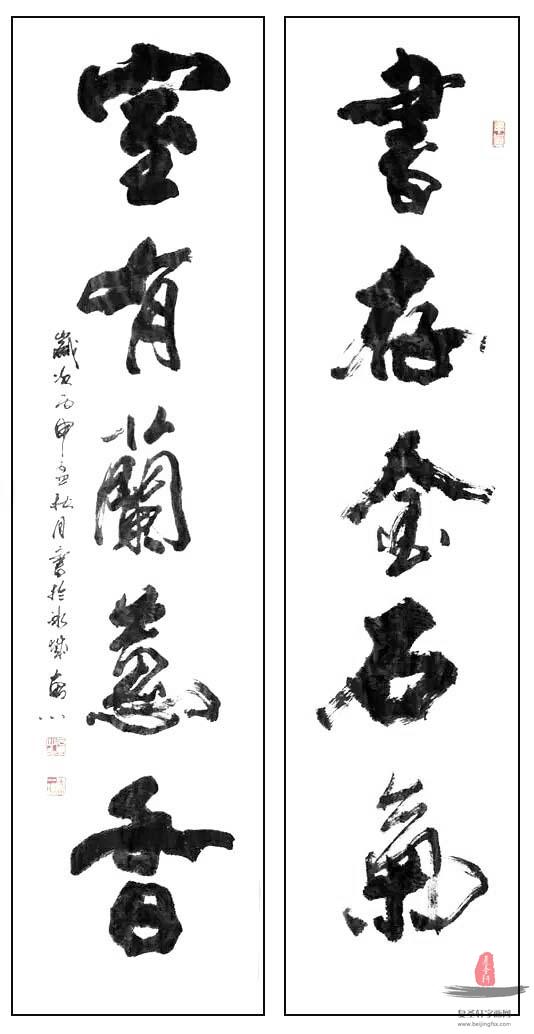 書存金石氣
室有蘭蕙香
歲次丙申孟秋月書於冰城
www.beijingfsx.com